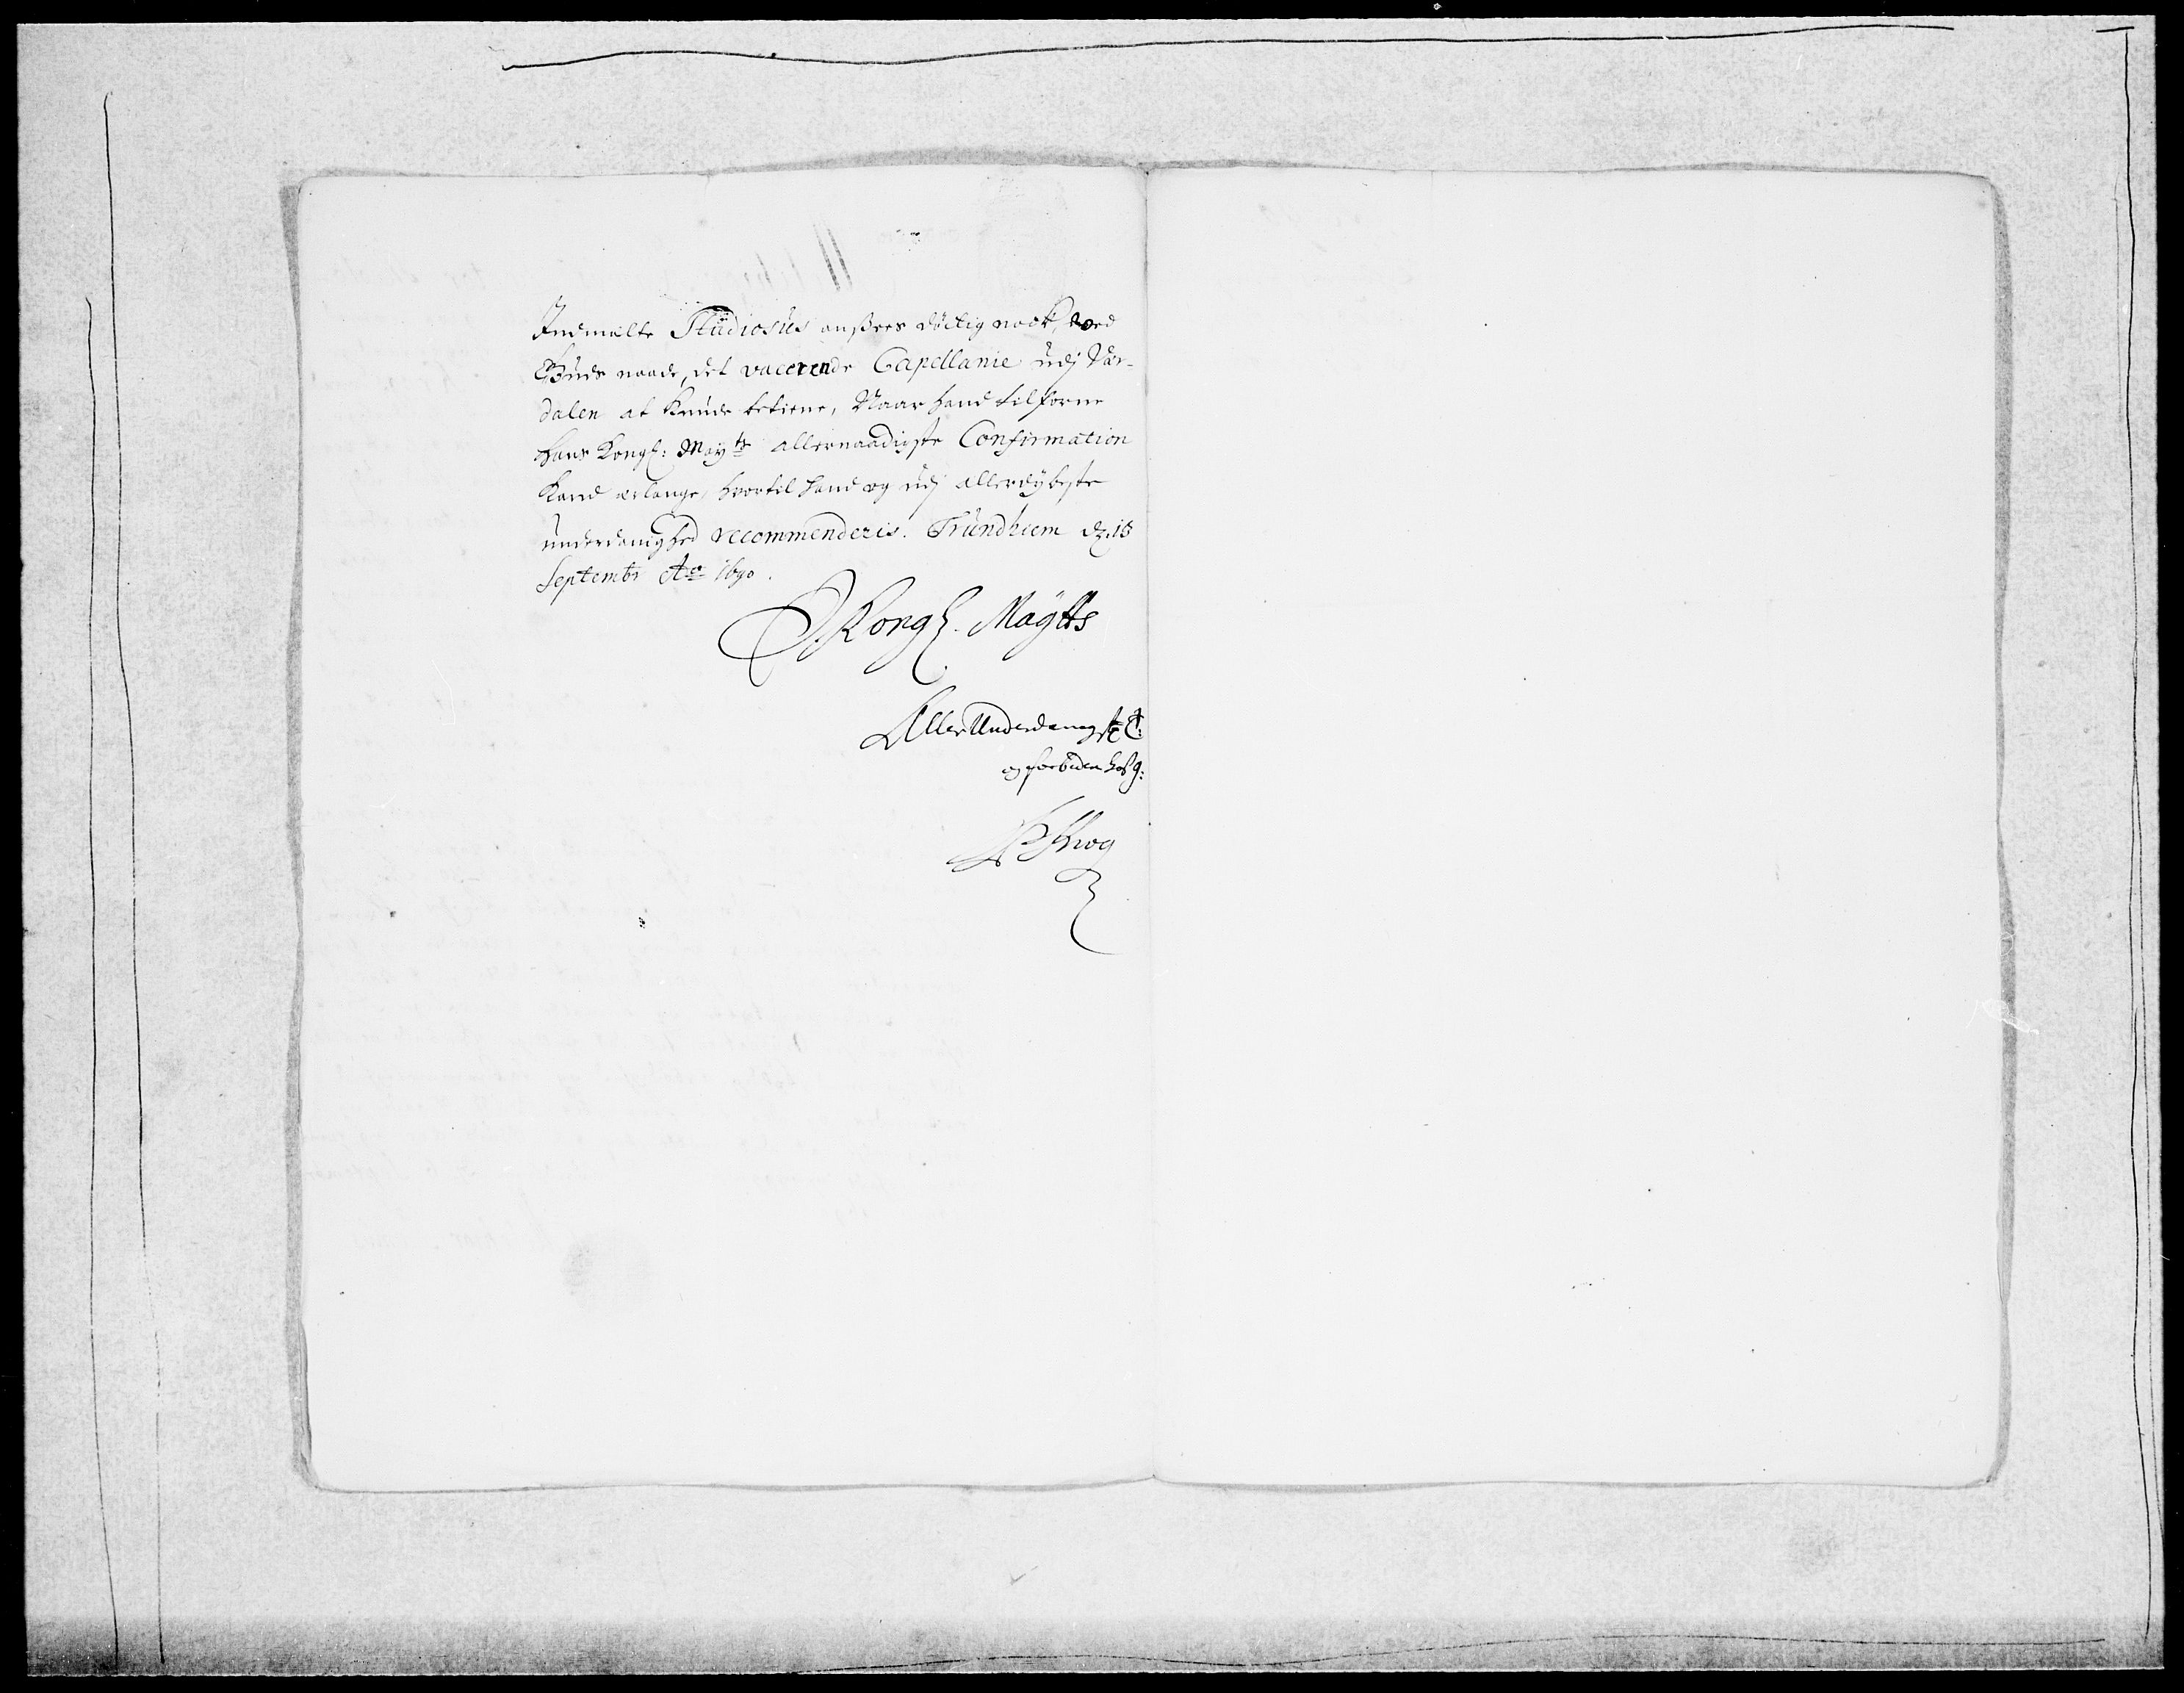 Indmälte Studiosus ansees döctig nock, ved
Guds naade, det vacerende Capellanie udj Vær-
dalen at kunde betiene, Naar hand tilforne
Hans Kongl: Mayts allernaadigste Confirmation
kand erlange, hvortil hand og udj allerdybeste
underdanighed recommenderis. Trundhiem d. 18
Septembr Ao 1690.
Kongl. Maytts
AllerUnderdanigste
og forbiden
Krog